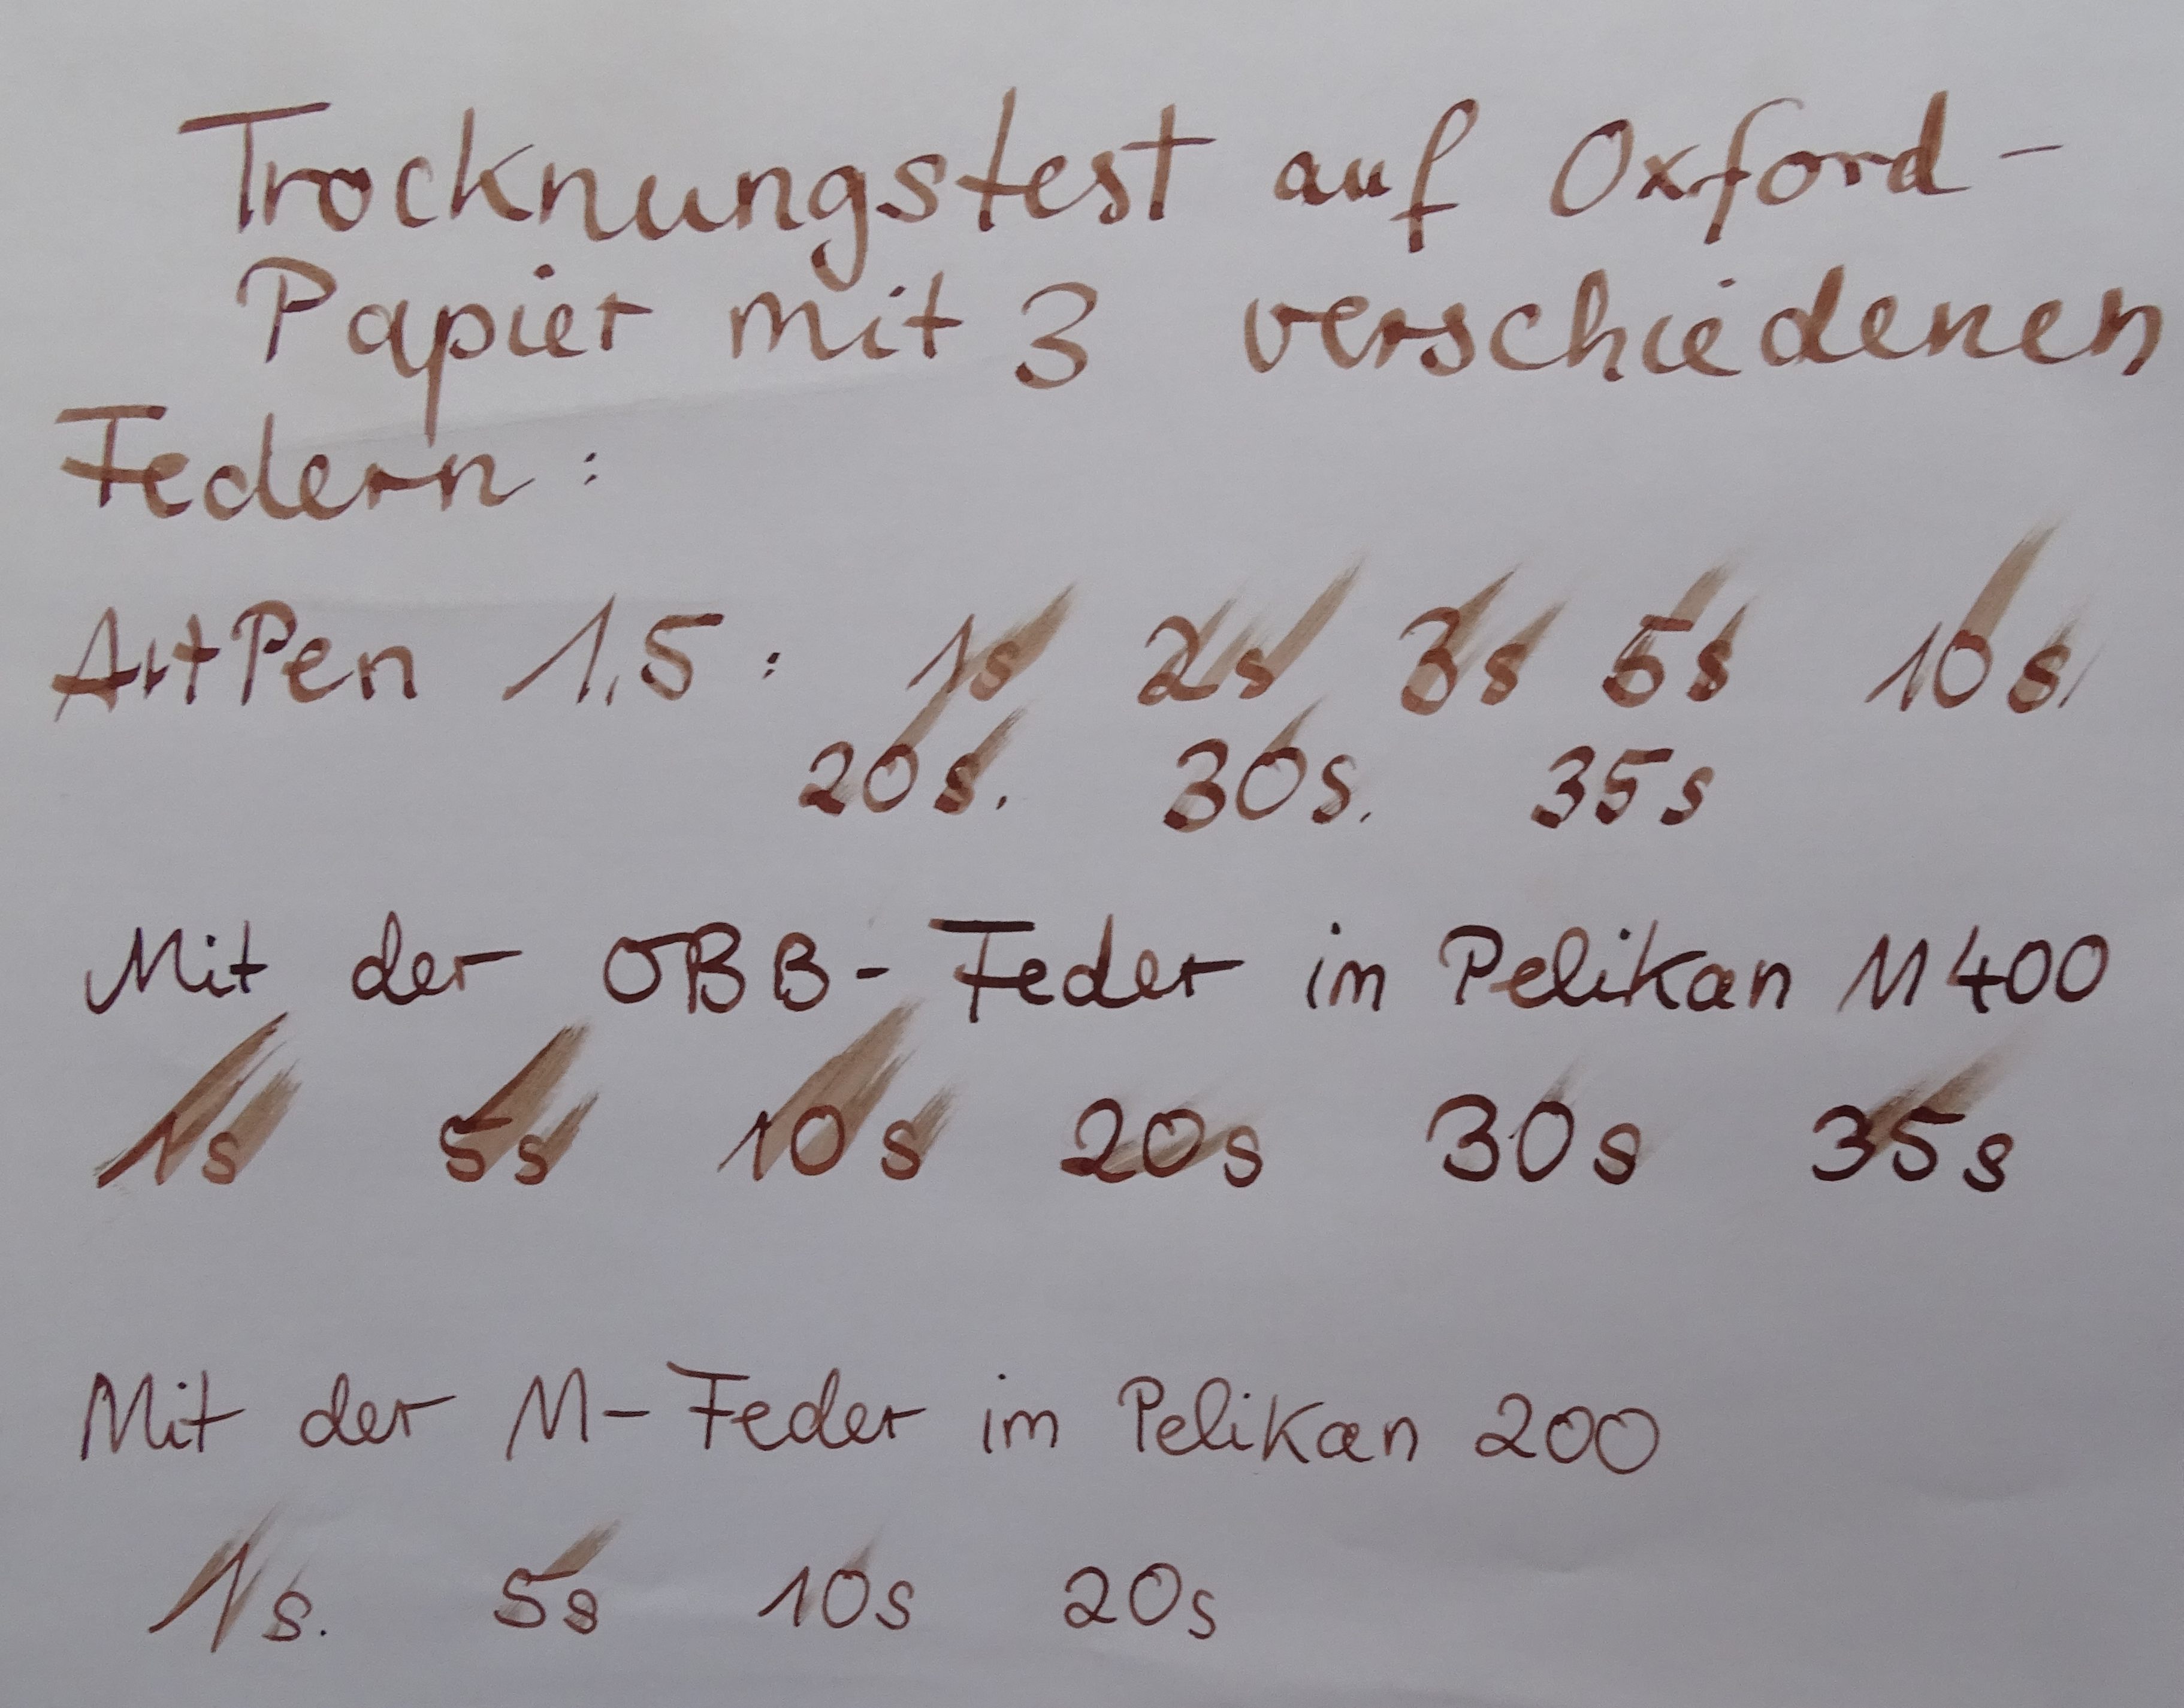 Trocknungstest auf Oxford-
Papier mit 3 verschiedenen
Federn:
ArtPen 1,5: 1s 2s 3s 5s 10s.
20s. 30s. 35s
Mit der OBB-Feder im Pelikan M400
1s 5s 10s 20s 30s 35s
Mit der M-Feder im Pelikan 200
1s. 5s 10s 20s